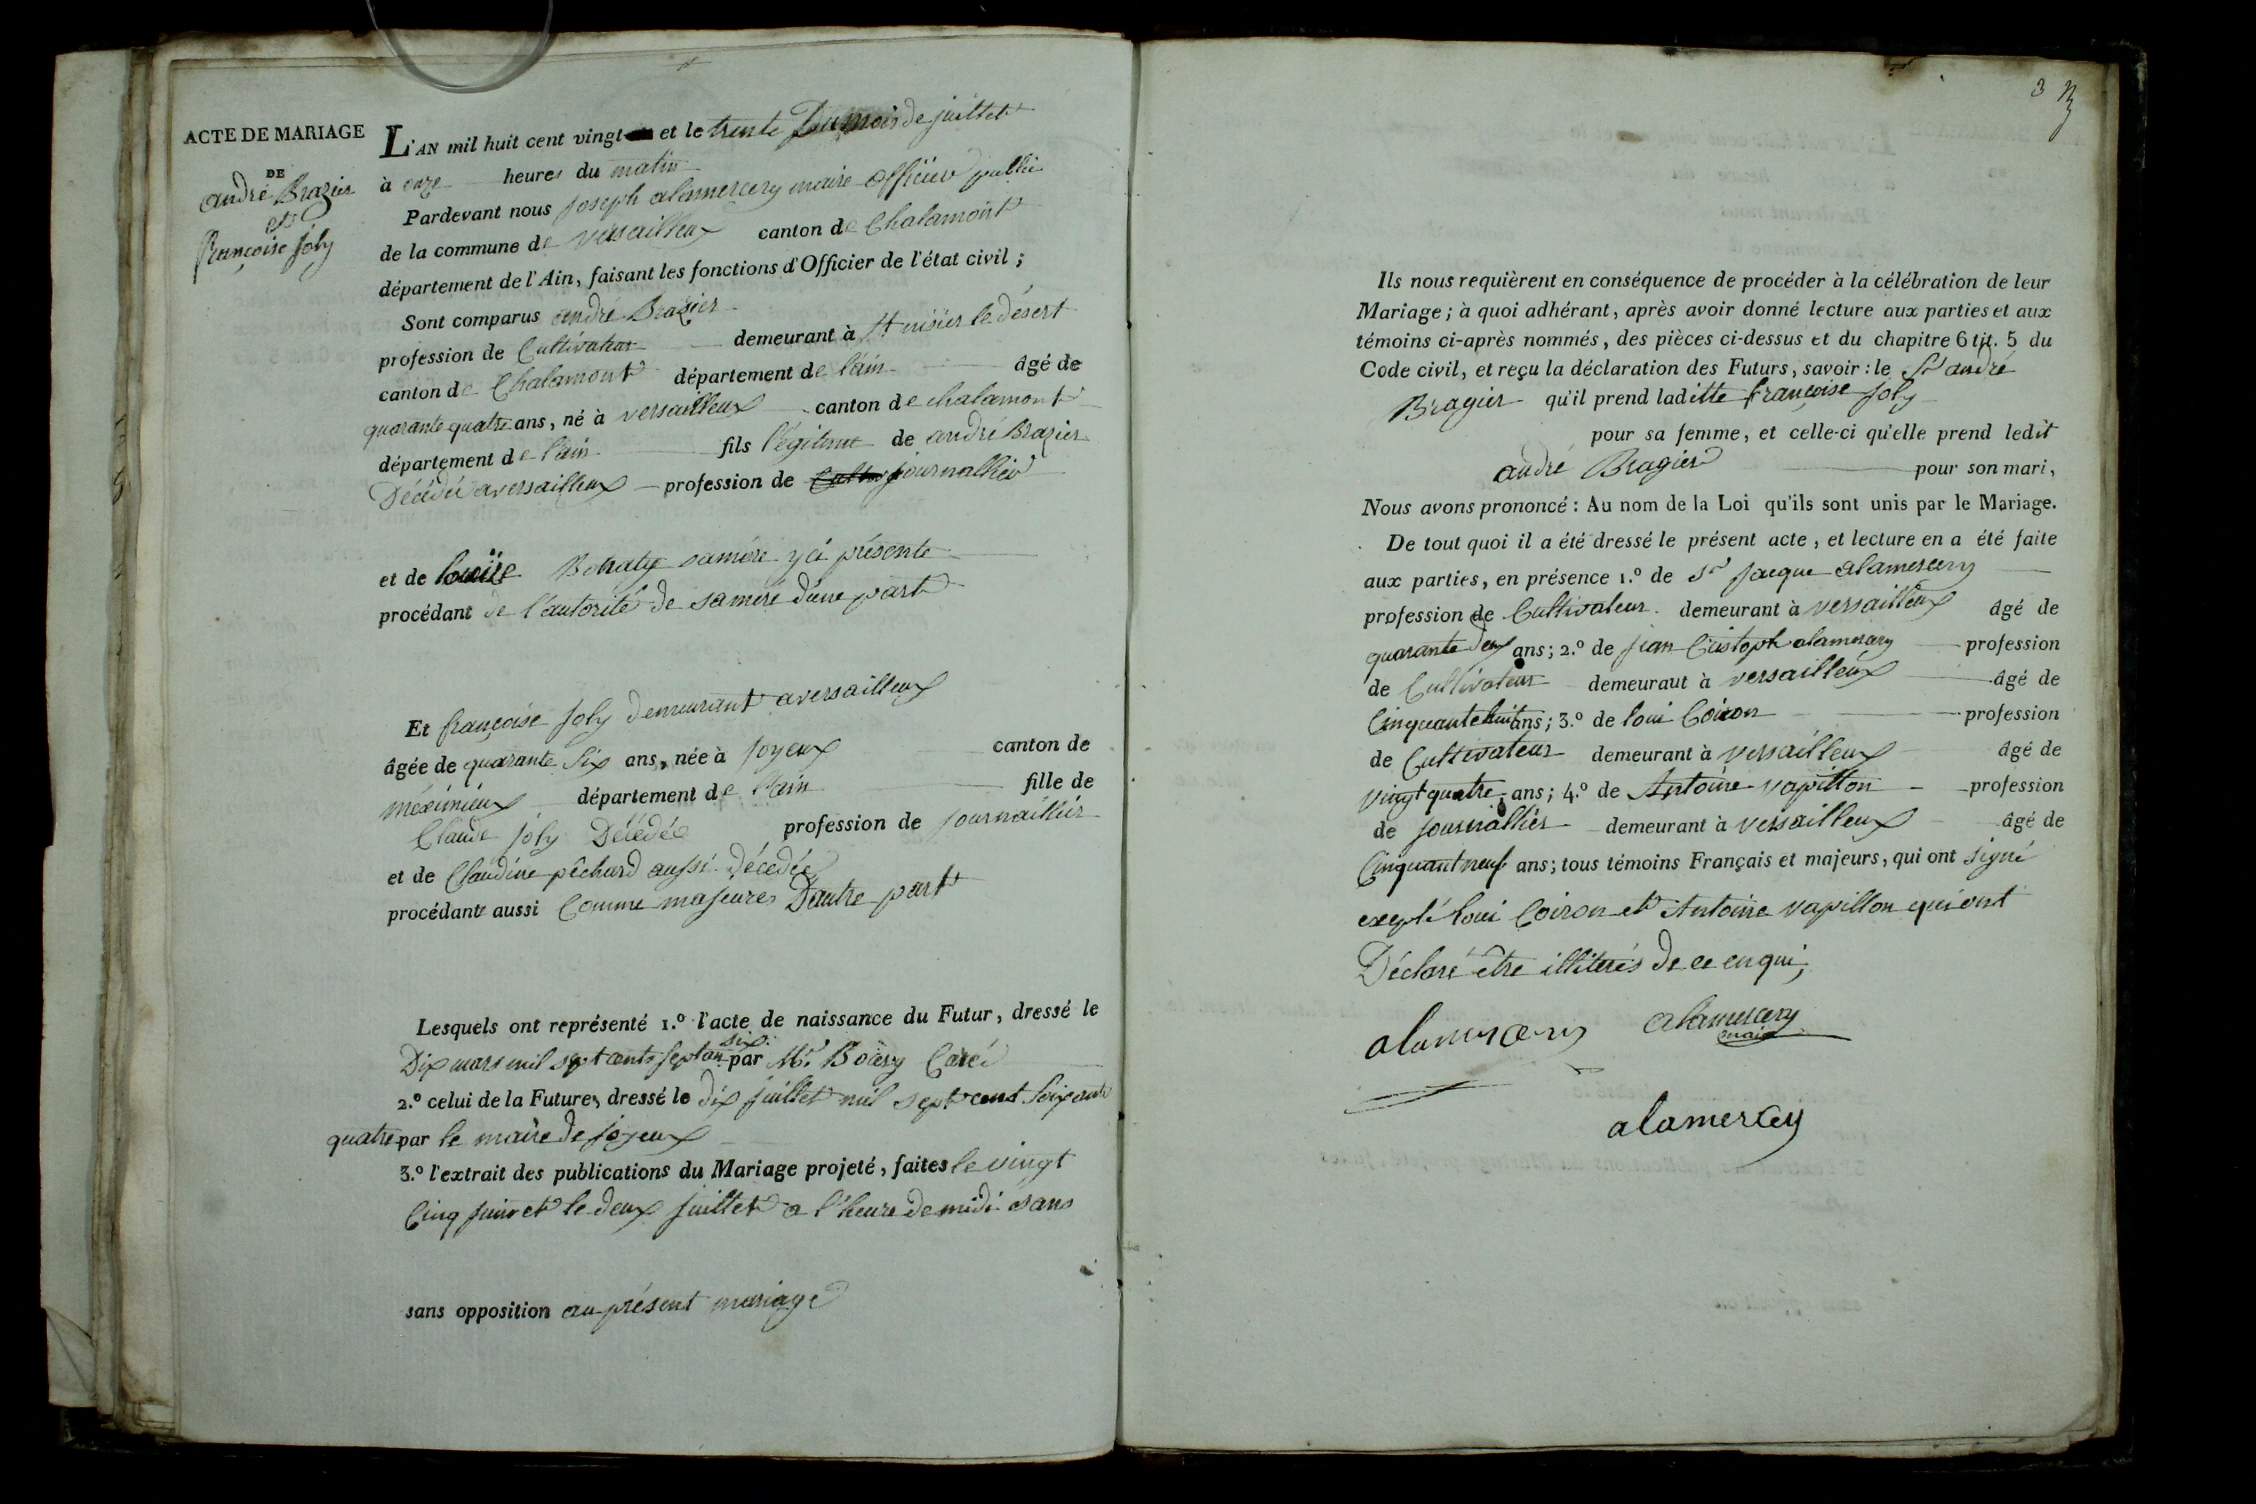 ACTE DE MARIAGE
DE
andré Brazier
et
françoise Joly
L'AN mil huit cent vingt et le trente Du mois de juillet
à onze heures du matin
Pardevant nous joseph alamercery maire officier public
de la commune de versailleux canton de Chalamont
département de l'Ain, faisant les fonctions d'Officier de l'état civil ;
Sont comparus andré Brazier
profession de Cultivateur demeurant à St nisier le désert
canton de Chalamont département de l'ain âgé de
quarante quatre ans, né à versailleux canton de chalamont
département de l'ain fils légitime de andré Brazier
Décédé aversailleux profession de journallier
et de louise samère yci présente
procédant de l'autorité de samère d'une part
Et françoise Joly demeurant aversailleux
âgée de quarante Six ans, née à Joyeux canton de
méximieux département de l'ain fille de
Claude joly Décédée profession de journaillier
et de Claudine pêchard aussi décédée
procédante aussi Comme majeures D'autre part
Lesquels ont représenté 1.º l'acte de naissance du Futur, dressé le
six
Dix mars mil sept cents septan par Mr. Boëry Curé
2.º celui de la Future, dressé le dix juillet mil sept cent soixante
quatre par le maire de joyeux
3.º l'extrait des publications du Mariage projeté, faites le vingt
Cinq juin et le deux juillet a l'heure de midi sans
sans opposition au présent mariage
3
Ils nous requièrent en conséquence de procéder à la célébration de leur
Mariage ; à quoi adhérant, après avoir donné lecture aux parties et aux
témoins ci-après nommés, des pièces ci-dessus et du chapitre 6 tit. 5 du
Code civil, et reçu la déclaration des Futurs, savoir : le Sr andré
Bragier qu'il prend laditte françoise Joly
pour sa femme, et celle-ci qu'elle prend ledit
andré Bragier pour son mari,
Nous avons prononcé : Au nom de la Loi qu'ils sont unis par le Mariage.
De tout quoi il a été dressé le présent acte, et lecture en a été faite
aux parties, en présence 1.º de Sr jacque alamercery
profession de Cultivateur demeurant à versailleux âgé de
quarante deux ans ; 2.º de jean Cristoph alamercery profession
de Cultivateur demeuraut à versailleux âgé de
Cinquante huit ans ; 3.º de loui Coiron profession
de Cultivateur demeurant à versailleux âgé de
vingt quatre ans ; 4.º de Antoine vapillon profession
de journallier demeurant à versailleux âgé de
Cinquant neuf ans ; tous témoins Français et majeurs, qui ont signé
exepté loui Coiron et Antoine vapillon qui ont
Déclaré être illiterés de ce enqui,
alamercery alamercery
maire
alamercery